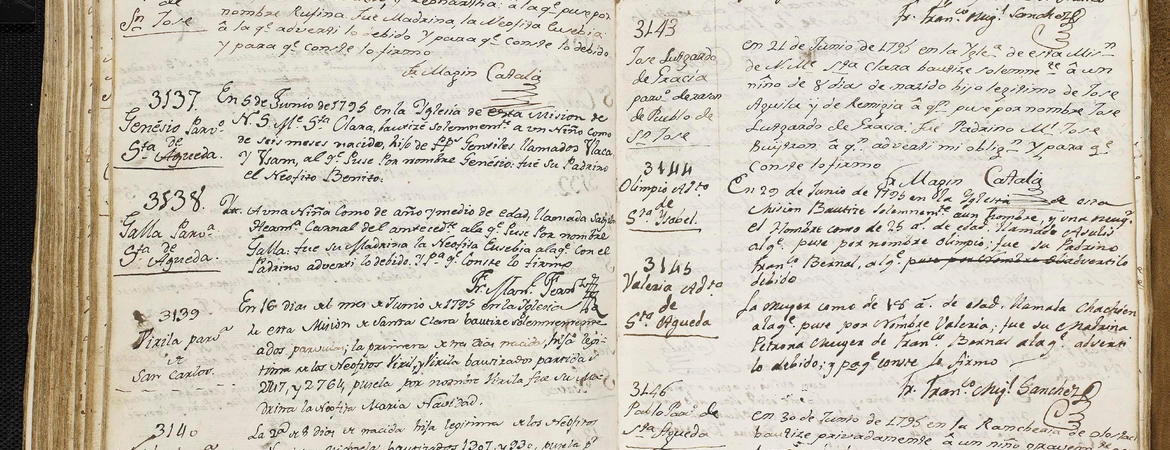 de
Sn Jose
nombre Rufina. fue Madrina la Neofita Eusebia:
à la qe. adverti lo debido y para qe. conste lo debido
y para qe. conste lo firmo
Fr. Magin Catalá
3137.
Genesio Parvo.
de
Sta. Agueda.
En 5 de Junio de 1795 en la Yglesia de esta Mision de
N. S. Me. Sta. Clara, bautizé solemnemte. a un Niño como
de seis meses nacido, hijo de Ps. Gentiles llamados
y al qe. Puse Por nombre Genesio: fue su Padrino
el Neofito Benito.
3138.
Galla Parva.
Sta. de
Agueda.
A una Niña como de año y medio de edad, llamada
Herma. Carnal del antecedte. ala qe. Puse Por nombre
Galla: fue su Madrina la Neofita Eusebia ala qe. con el
Padrino adverti lo debido. Y Pa. qe. Conste lo firmo
Fr. Manl. Fernz.
3139
Virila parva
de
San Carlos.
En 16 dias del mes de Junio de 1795 en la Yglesia
de esta Mision de Santa Clara bautize solemnemente
a dos parvulas; la primera de tres dias nacida, hija legi-
tima de los Neofitos Viril, y Virila bautizados partida
2747, y 2764, pusela por nombre Virila fue su Ma-
drina la Neofita Maria Navidad.
3140
La 2a. de 8 dias de nacida hija legitima de los Neofitos
Fr. Franco. Migl. Sanchez
3143
Jose Lutgardo
de Gracia
parvo. de razon
de Pueblo de
Sn Jose
en 21 de Junio de 1795 en la Ylea. de esta Misn.
de N. Me. Sta Clara bautize solemnete. â un
niño de 8 dias de nacido hijo legitimo de Jose
Aguila y de Remigia â qe. puse por nombre Jose
Lutgardo de Gracia. Fue Padrino Ml. Jose
Buytron â qe. adverti mi oblign. y para qe.
Conste lo firmo
Fr. Magin Catalá
3144
Olimpio Adto
de
Sta Ysabel.
En 29 de Junio de 1795 en la Yglesia de esta
Mision Bautize Solemnemte. aun hombre, y una muger
el Hombre como de 25 a. de edad. llamado
al qe. puse por nombre olimpio; fue su Padrino
Franco. Bernal, al qe. puse por Nombre advertilo
debido
3145
Valeria Adta.
de
Sta. Agueda
La Muger como de a. de edad. llamada
ala qe. puse por Nombre Valeria; fue su Madrina
Petrona Muger de Franco. Bernal ala qe. adverti
lo debido; y pa. qe. conste lo firmo
Fr. Franco. Migl. Sanchez
3146
Pablo Parvo. de
Sta Agueda
en 30 de Junio de 1795 en la Rancheria de
bautize privadamente â un niño